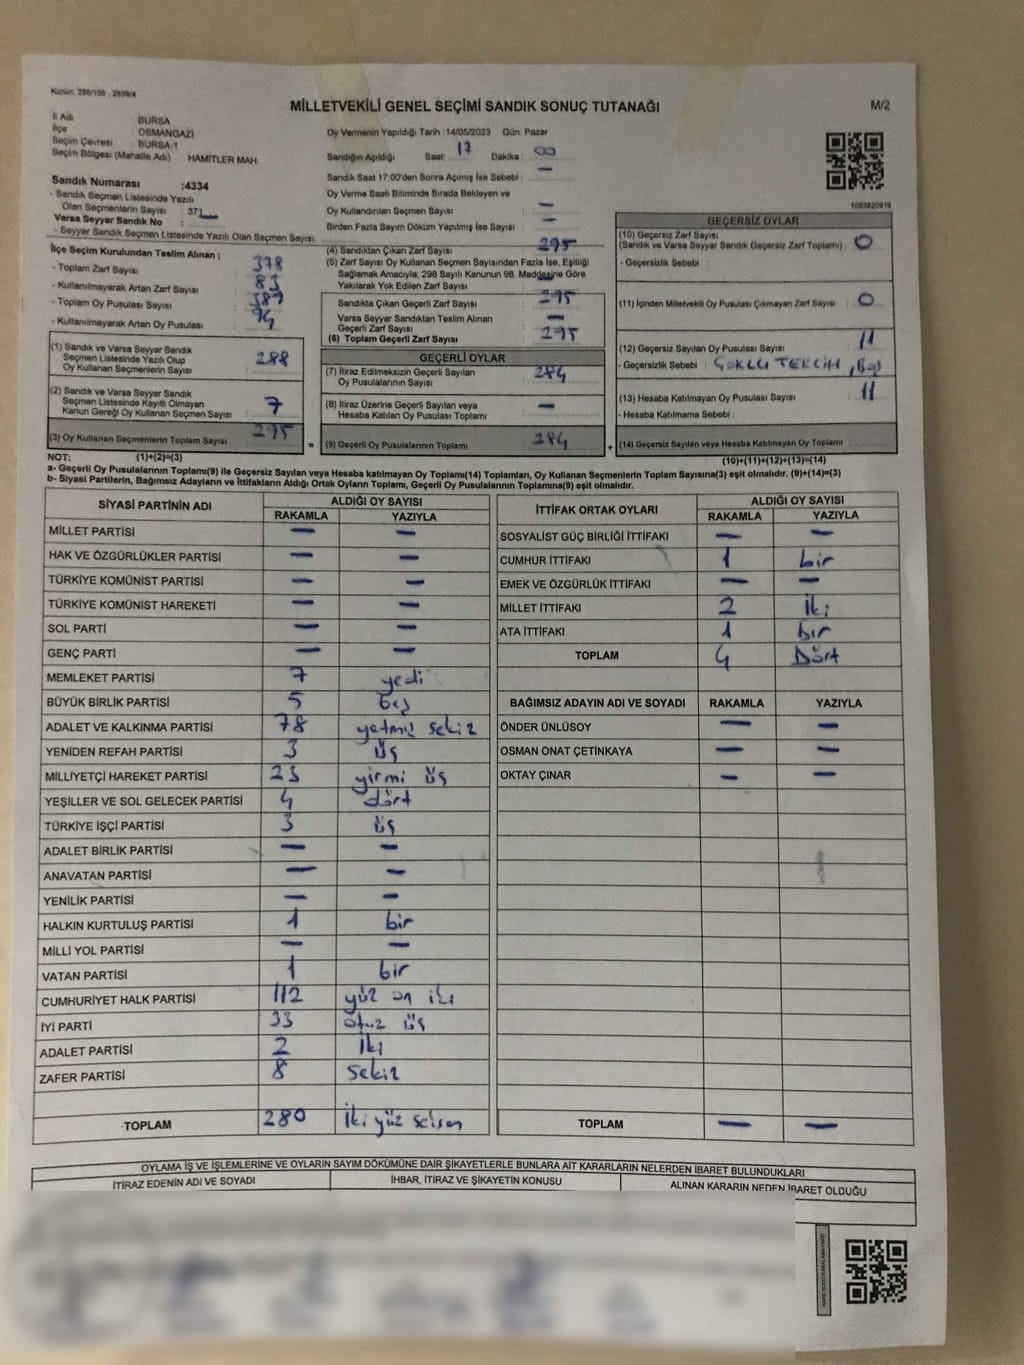 Kanun, 298/105 , 2839/4
MİLLETVEKİLİ GENEL SEÇİMİ SANDIK SONUÇ TUTANAĞI
M/2
İl Adı : BURSA
İlçe : OSMANGAZİ
Seçim Çevresi : BURSA-1
Seçim Bölgesi (Mahalle Adı) : HAMİTLER MAH.
Sandık Numarası :4334
- Sandık Seçmen Listesinde Yazılı
Olan Seçmenlerin Sayısı : 371
Varsa Seyyar Sandık No :
- Seyyar Sandık Seçmen Listesinde Yazılı Olan Seçmen Sayısı:
İlçe Seçim Kurulundan Teslim Alınan ;
- Toplam Zarf Sayısı : 378
- Kullanılmayarak Artan Zarf Sayısı : 83
- Toplam Oy Pusulası Sayısı :
- Kullanılmayarak Artan Oy Pusulası : 94
(1) Sandık ve Varsa Seyyar Sandık
Seçmen Listesinde Yazılı Olup
Oy Kullanan Seçmenlerin Sayısı : 288
(2) Sandık ve Varsa Seyyar Sandık
Seçmen Listesinde Kayıtlı Olmayan
Kanun Gereği Oy Kullanan Seçmen Sayısı : 7
(3) Oy Kullanan Seçmenlerin Toplam Sayısı 295
Oy Vermenin Yapıldığı Tarih :14/05/2023 Gün: Pazar
Sandığın Açıldığı Saat : 17 Dakika : 00
Sandık Saat 17:00'den Sonra Açımış İse Sebebi : —
Oy Verme Saati Bitiminde Sırada Bekleyen ve
Oy Kullandırılan Seçmen Sayısı : —
Birden Fazla Sayım Döküm Yapılmış İse Sayısı : —
(4) Sandıktan Çıkan Zarf Sayısı : 295
(5) Zarf Sayısı Oy Kullanan Seçmen Sayısından Fazla İse, Eşitliği
Sağlamak Amacıyla; 298 Sayılı Kanunun 98. Maddesine Göre
Yakılarak Yok Edilen Zarf Sayısı : —
Sandıkta Çıkan Geçerli Zarf Sayısı : 295
Varsa Seyyar Sandıktan Teslim Alınan
Geçerli Zarf Sayısı : —
(6) Toplam Geçerli Zarf Sayısı : 295
GEÇERLİ OYLAR
(7) İtiraz Edilmeksizin Geçerli Sayılan
Oy Pusulalarının Sayısı : 284
(8) İtiraz Üzerine Geçerli Sayılan veya
Hesaba Katılan Oy Pusulası Toplamı : —
= (9) Geçerli Oy Pusulalarının Toplamı : 284
1083820916
GEÇERSİZ OYLAR
(10) Geçersiz Zarf Sayısı
(Sandık ve Varsa Seyyar Sandık Geçersiz Zarf Toplamı) : 0
- Geçersizlik Sebebi :
(11) İçinden Milletvekili Oy Pusulası Çıkmayan Zarf Sayısı : 0
(12) Geçersiz Sayılan Oy Pusulası Sayısı : 11
- Geçersizlik Sebebi : ÇOKLU TERCİH, Boş
(13) Hesaba Katılmayan Oy Pusulası Sayısı : 11
- Hesaba Katılmama Sebebi :
+ (14) Geçersiz Sayılan veya Hesaba Katılmayan Oy Toplamı :
NOT: (1)+(2)=(3) (10)+(11)+(12)+(13)=(14)
a- Geçerli Oy Pusulalarının Toplamı(9) ile Geçersiz Sayılan veya Hesaba katılmayan Oy Toplamı(14) Toplamları, Oy Kullanan Seçmenlerin Toplam Sayısına(3) eşit olmalıdır. (9)+(14)=(3)
b- Siyasi Partilerin, Bağımsız Adayların ve İttifakların Aldığı Ortak Oyların Toplamı, Geçerli Oy Pusulalarının Toplamına(9) eşit olmalıdır.
SİYASİ PARTİNİN ADI ALDIĞI OY SAYISI
RAKAMLA YAZIYLA
MİLLET PARTİSİ — —
HAK VE ÖZGÜRLÜKLER PARTİSİ — —
TÜRKİYE KOMÜNİST PARTİSİ — —
TÜRKİYE KOMÜNİST HAREKETİ — —
SOL PARTİ — —
GENÇ PARTİ — —
MEMLEKET PARTİSİ 7 yedi
BÜYÜK BİRLİK PARTİSİ 5 beş
ADALET VE KALKINMA PARTİSİ 78 yetmiş sekiz
YENİDEN REFAH PARTİSİ 3 üş
MİLLİYETÇİ HAREKET PARTİSİ 23 yirmi üş
YEŞİLLER VE SOL GELECEK PARTİSİ 4 dört
TÜRKİYE İŞÇİ PARTİSİ 3 üş
ADALET BİRLİK PARTİSİ — —
ANAVATAN PARTİSİ — —
YENİLİK PARTİSİ — —
HALKIN KURTULUŞ PARTİSİ 1 bir
MİLLİ YOL PARTİSİ — —
VATAN PARTİSİ 1 bir
CUMHURİYET HALK PARTİSİ 112 yüz on iki
İYİ PARTİ 33 otuz üş
ADALET PARTİSİ 2 İki
ZAFER PARTİSİ 8 sekiz
TOPLAM 280 İki yüz seksen
İTTİFAK ORTAK OYLARI ALDIĞI OY SAYISI
RAKAMLA YAZIYLA
SOSYALİST GÜÇ BİRLİĞİ İTTİFAKI — —
CUMHUR İTTİFAKI 1 bir
EMEK VE ÖZGÜRLÜK İTTİFAKI — —
MİLLET İTTİFAKI 2 İki
ATA İTTİFAKI 1 bir
TOPLAM 4 Dört
BAĞIMSIZ ADAYIN ADI VE SOYADI RAKAMLA YAZIYLA
ÖNDER ÜNLÜSOY — —
OSMAN ONAT ÇETİNKAYA — —
OKTAY ÇINAR — —
TOPLAM — —
OYLAMA İŞ VE İŞLEMLERİNE VE OYLARIN SAYIM DÖKÜMÜNE DAİR ŞİKAYETLERLE BUNLARA AİT KARARLARIN NELERDEN İBARET BULUNDUKLARI
İTİRAZ EDENİN ADI VE SOYADI İHBAR, İTİRAZ VE ŞİKAYETİN KONUSU ALINAN KARARIN NEDEN İBARET OLDUĞU